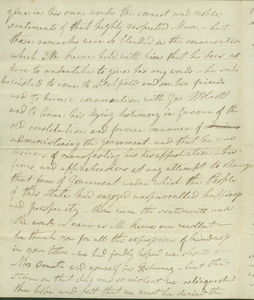 give in his own words the correct and noble
sentiments of that highly respected Man — but
those remarks were so blended in the conversation
which Mr held with him that he does not
time to undertake to give his very words — he was
to come to and see his friends
and to have a conversation with Gov Wolcott
and to leave his dying testimony in favour of the
old constitution and former manner of
administering the government and that he was
of manifesting his disapprobation his
fears and apprehensions at any attempt to change
that form of Government under which the People
of this State had enjoyed unparalleled happiness
and prosperity — these were the sentiments and
the words as near as Mr can recollect —
we thank you for all the expressions of kindness
in your letter — we had fondly hoped we should
Mrs and yourself in — but the
storm on that day was so violent we relinquished
this hope and felt that we must be denied the